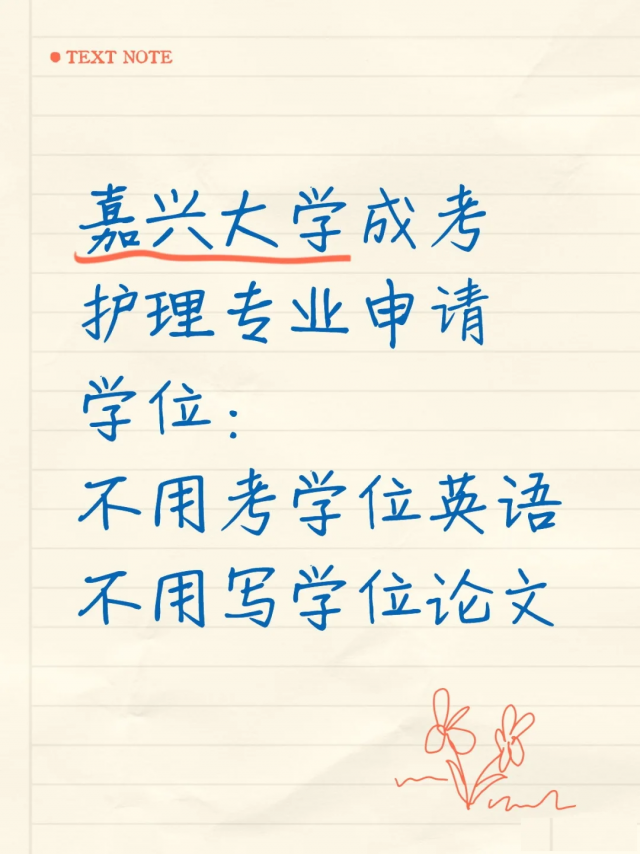 TEXT NOTE
嘉兴大学成考
护理专业申请
学位：
不用考学位英语
不用写学位论文